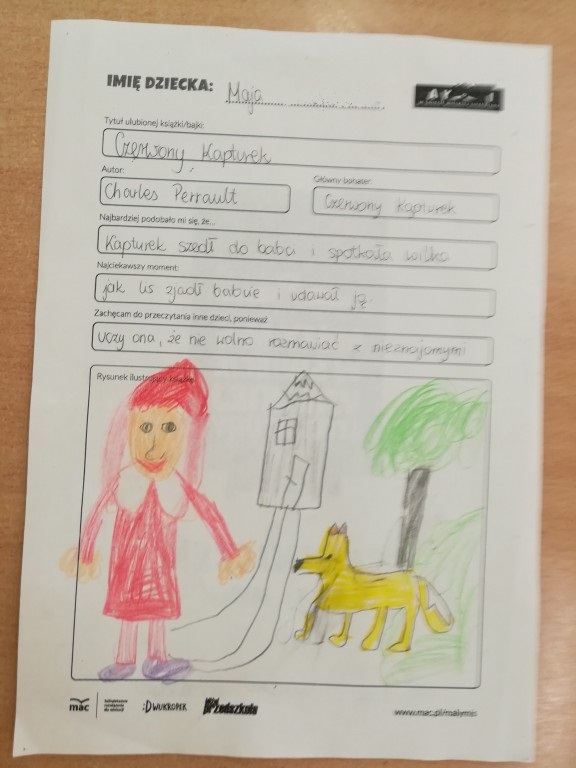 IMIĘ DZIECKA: Maja
Tytuł ulubionej książki/bajki:
Czerwony Kapturek
Autor: Główny bohater:
Charles Perrault Czerwony kapturek
Najbardziej podobało mi się, że...
Kapturek szedł do babci i spotkała wilka
Najciekawszy moment:
jak lis zjadł babcie i udawał ją
Zachęcam do przeczytania inne dzieci, ponieważ
uczy ona, że nie wolno rozmawiać z nieznajomymi
Rysunek ilustrujący książkę:
mac :DWUKROPEK przedszkole www.mac.pl/malymis